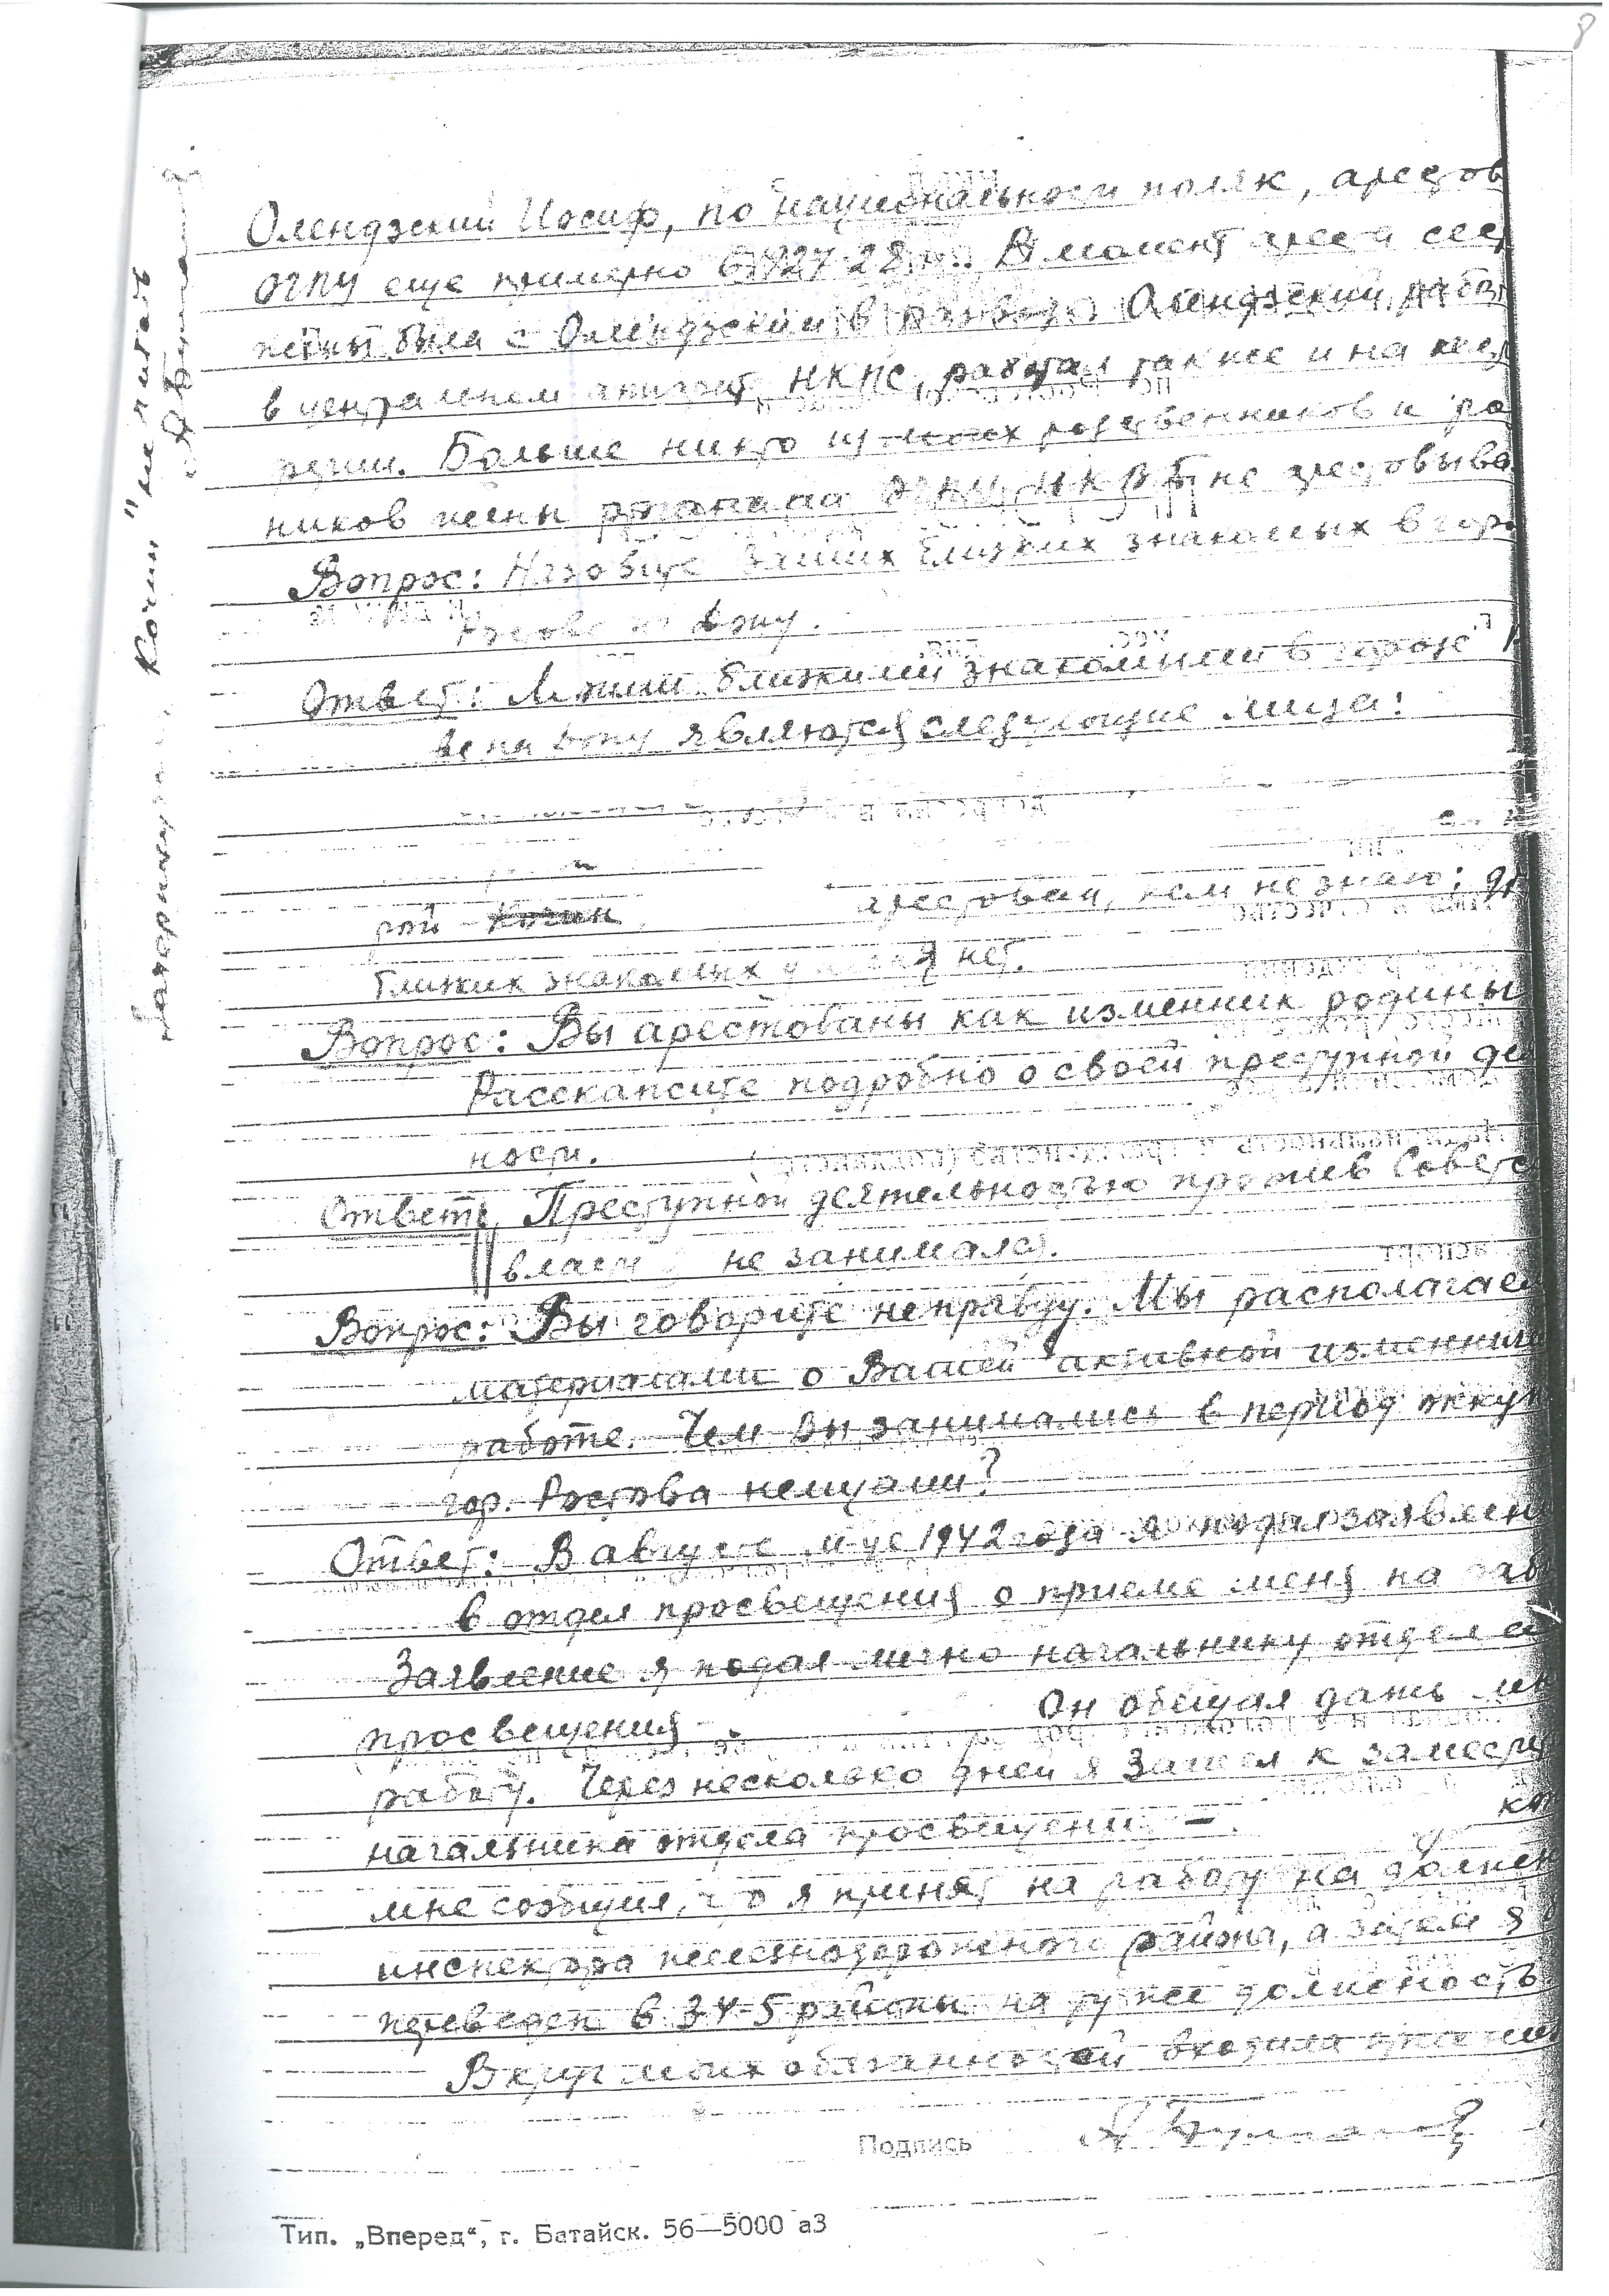 8
Олендзский Иосиф, по национальности поляк, арестов
ОГПУ еще примерно в 1927-28 г.. В момент ареста сест
жены была с Олендзским в разводе. Олендзский работ
в центральном аппарате НКПС, работал так же и на
Больше никто из моих родственников и ро
ников жены органами ОГПУ НКВД не арестовыва
Вопрос: Назовите Ваших близких знакомых в гор
Ростове на Дону.
Ответ: Моими близкими знакомыми в городе
ве на Дону являются следующие лица:
рой Кочин арестован, кем не знаю; др
близких знакомых у меня нет.
Вопрос: Вы арестованы как изменник родины
Расскажите подробно о своей преступной де
ности.
Ответ: Преступной деятельностью против Советс
власти не занимался.
Вопрос: Вы говорите неправду. Мы располагаем
материалами о Вашей активной изменнич
работе. Чем Вы занимались в период оккуп
гор. Ростова немцами?
Ответ: В августе м-це 1942 года я подал заявлен
в отдел просвещения о приеме меня на раб
Заявление я подал лично начальнику отдела
просвещения Он обещал дать мн
работу. Через несколько дней я зашел к замести
начальника отдела просвещения – ко
мне сообщил, что я принят на работу на должн
инспектора железнодорожного района, а затем я
переведен в 3-4-5 районы на ту же должность.
В круг моих обязанностей входила
Подпись
Тип. „Вперед“, г. Батайск. 56—5000 а3
Зачеркнуто Кочин "не читать